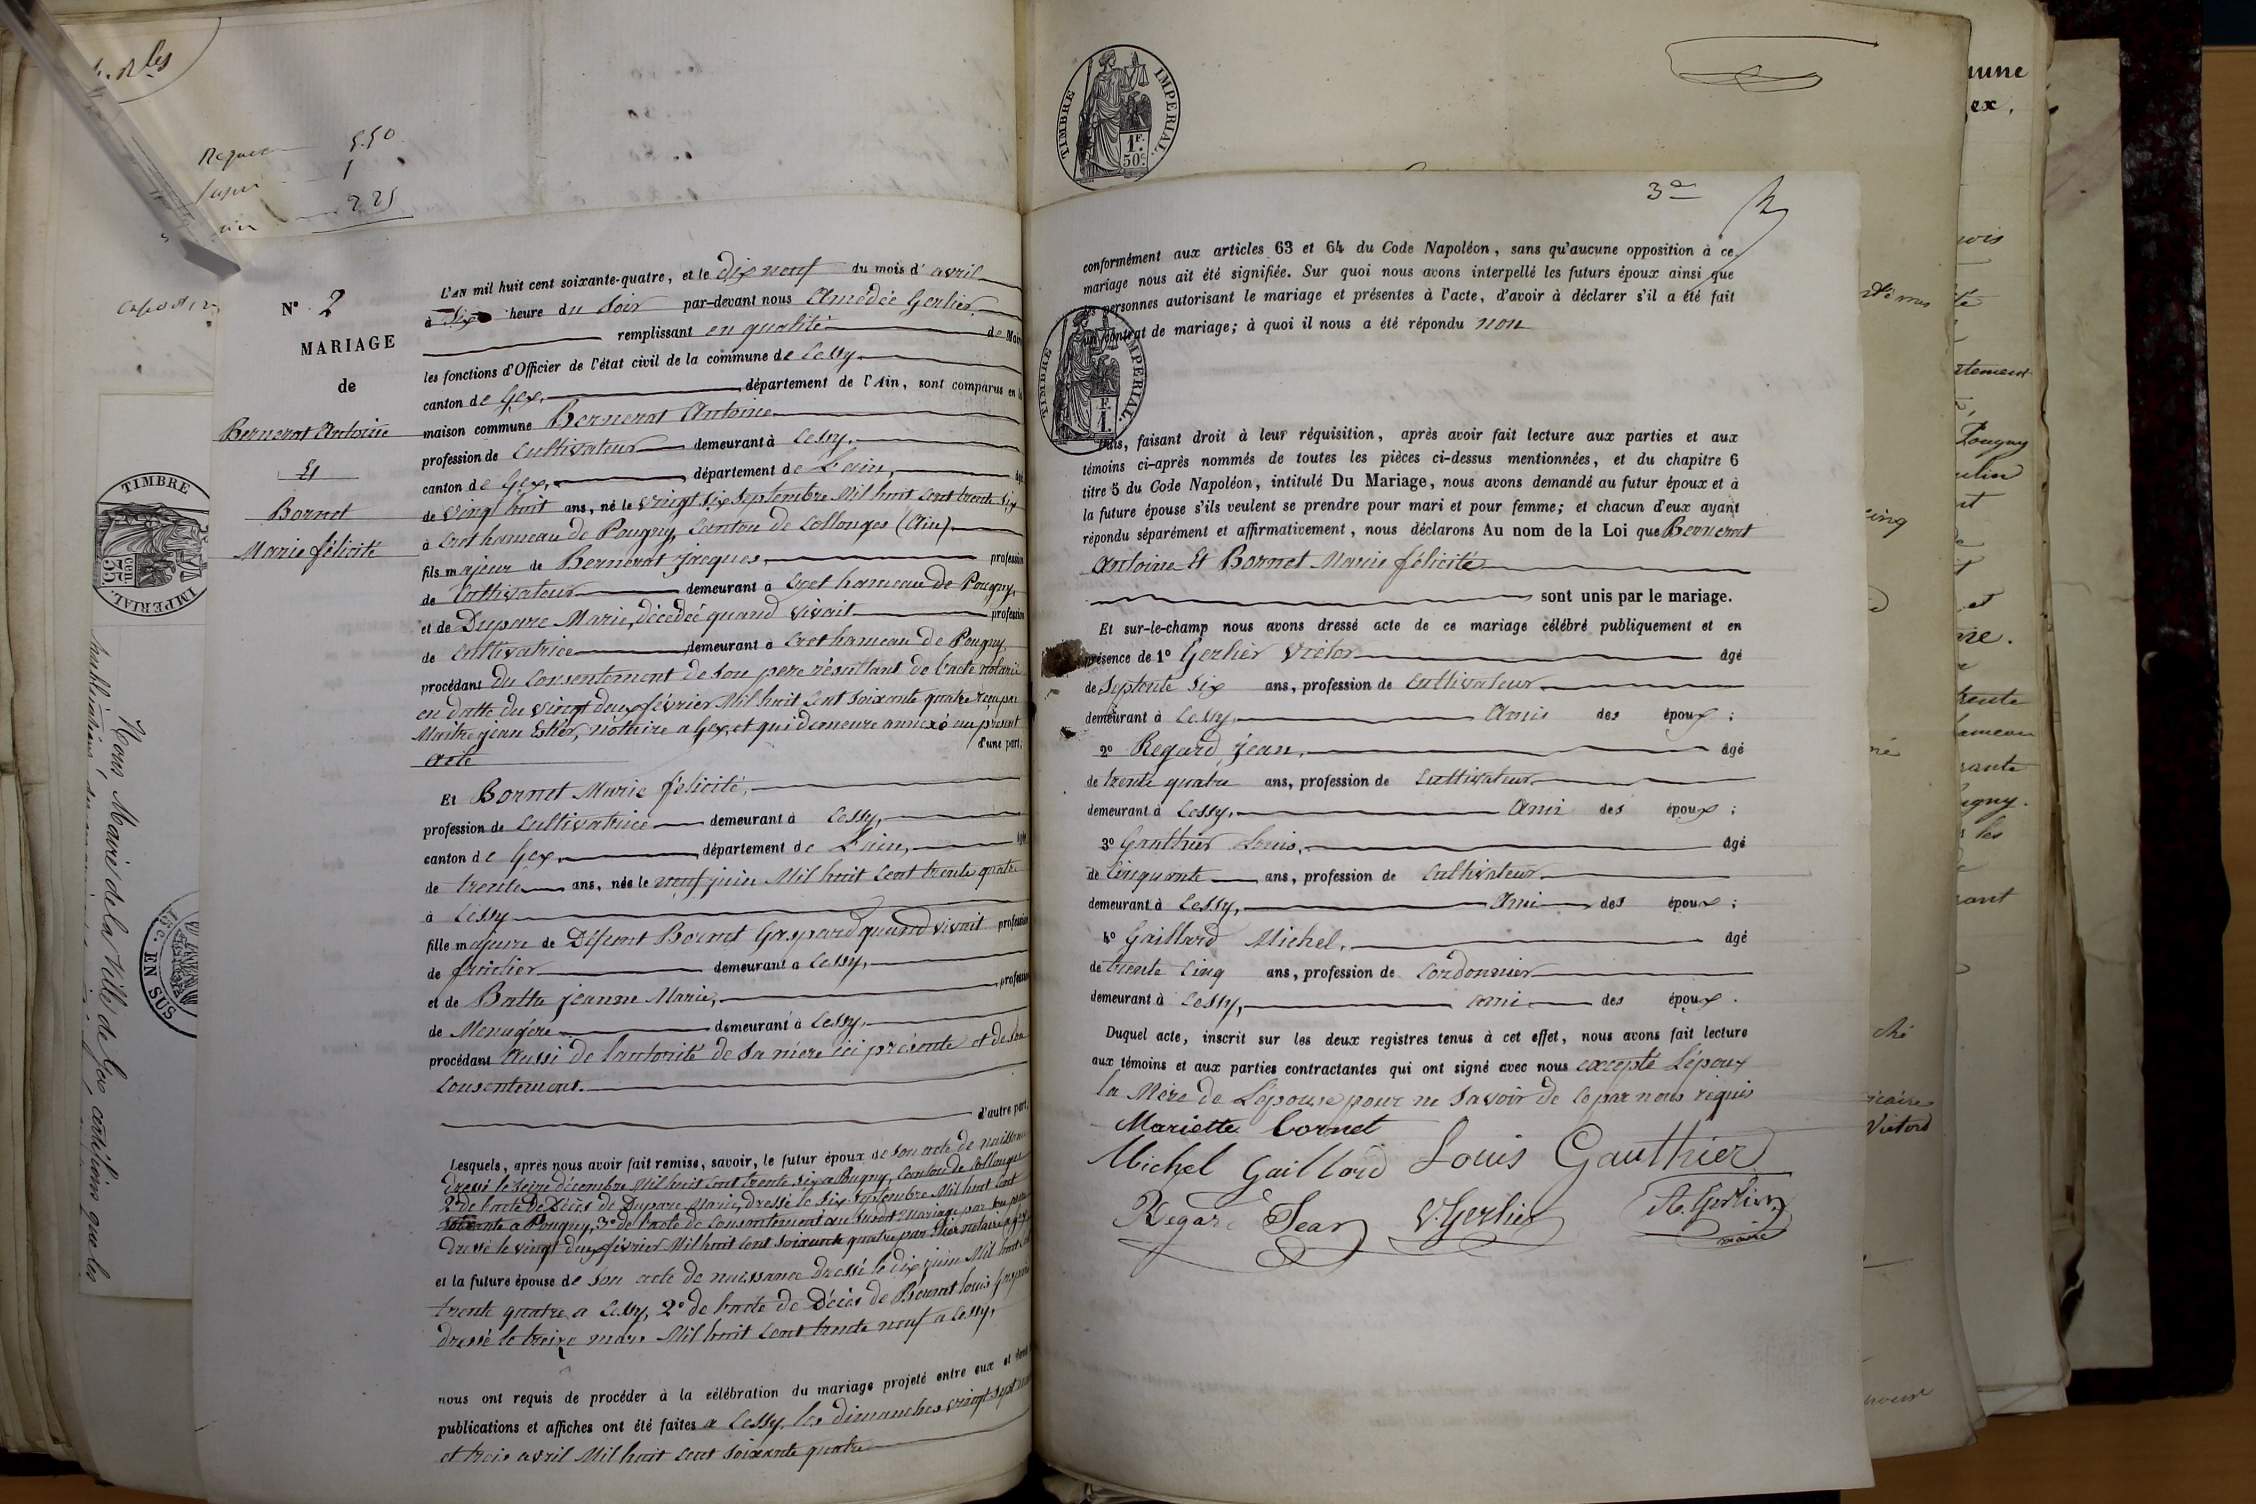 Requete 5.50
1
2 25
N° 2
MARIAGE
de
Bernerat Antoine
Et
Bornet
Marie félicité
TIMBRE
IMPERIAL.
35
cen.
EN SUS
Nous, Maire de la Ville de Gex, certifions que les
publications
L'AN mil huit cent soixante-quatre, et le dix neuf du mois d'avril
à Six heure du Soir par-devant nous Amédée Gerlier
remplissant en qualité de Maire
les fonctions d'Officier de l'état civil de la commune de Cessy
canton de Gex, département de l'Ain, sont comparus en la
maison commune Bernerat Antoine
profession de Cultivateur demeurant à Cessy,
canton de Gex, département de L'ain, âgé
de vingt huit ans, né le vingt Six Septembre Mil huit Cent trente Six
à Cret hameau de Pougny, Canton de Collonges (Ain)
fils majeur de Bernerat Jacques, profession
de Cultivateur demeurant à Cret hameau de Pougny,
et de Duparc Marie, décédée quand vivait profession
de Cultivatrice demeurant à Cret hameau de Pougny,
procédant du Consentement de Son pere résultant de l'acte notarié
en datte du vingt deux février Mil huit Cent Soixante quatre reçu par
Maitre jean Estier, nôtaire a Gex, et qui demeure annexé au présent
d'une part;
acte
Et Bornet Marie félicité,
profession de Cultivatrice demeurant à Cessy,
canton de Gex, département de L'ain, âgée
de trente ans, née le neuf juin Mil huit Cent trente quatre
à Cessy
fille majeure de Défunt Bornet Gaspard quand vivait profession
de fruitier demeurant à Cessy,
et de Batta jeanne Marie, profession
de Menagère demeurant à Cessy,
procédant aussi de l'autorité de Sa mère ici présente et de Son
Consentement.
d'autre part,
Lesquels, après nous avoir fait remise, savoir, le futur époux de Son acte de naissance
dressé le Seize décembre Mil huit Cent trente Six a Pougny, Canton de Collonges
2° de l'acte De Décès de Duparc Marie, dressé le Six Septembre Mil huit Cent
Soixante a Pougny, 3° de l'acte de Consentement au Susdit Mariage par Son père
dressé le vingt deux février Mil huit Cent Soixante quatre par Estier notaire a Gex
et la future épouse de Son acte de naissance dressé le dix juin Mil huit Cent
trente quatre a Cessy, 2° de l'acte de Décès de Bornet louis Gaspard
dressé le treize mars Mil huit Cent trente neuf a Cessy,
nous ont requis de procéder à la célébration du mariage projeté entre eux et dont
publications et affiches ont été faites a Cessy les dimanches vingt Sept mars
et trois avril Mil huit Cent Soixante quatre
TIMBRE IMPERIAL.
1F.
50c.
3e
conformément aux articles 63 et 64 du Code Napoléon, sans qu'aucune opposition à ce
mariage nous ait été signifiée. Sur quoi nous avons interpellé les futurs époux ainsi que
les personnes autorisant le mariage et présentes à l'acte, d'avoir à déclarer s'il a été fait
un contrat de mariage; à quoi il nous a été répondu non
TIMBRE IMPERIAL.
F.
1.
Puis, faisant droit à leur réquisition, après avoir fait lecture aux parties et aux
témoins ci-après nommés de toutes les pièces ci-dessus mentionnées, et du chapitre 6
titre 5 du Code Napoléon, intitulé Du Mariage, nous avons demandé au futur époux et à
la future épouse s'ils veulent se prendre pour mari et pour femme; et chacun d'eux ayant
répondu séparément et affirmativement, nous déclarons Au nom de la Loi que Bernerat
Antoine Et Bornet Marie félicité
sont unis par le mariage.
Et sur-le-champ nous avons dressé acte de ce mariage célébré publiquement et en
présence de 1° Gerlier Victor âgé
de Septente Six ans, profession de Cultivateur
demeurant à Cessy, Ami des époux;
2° Regard jean, âgé
de trente quatre ans, profession de Cultivateur
demeurant à Cessy, Ami des époux;
3° Gauthier Louis, âgé
de Cinquante ans, profession de Cultivateur
demeurant à Cessy, Ami des époux;
4° Gaillard Michel, âgé
de trente Cinq ans, profession de Cordonnier
demeurant à Cessy, ami des époux.
Duquel acte, inscrit sur les deux registres tenus à cet effet, nous avons fait lecture
aux témoins et aux parties contractantes qui ont signé avec nous excepté L'époux
la Mère de L'épouse pour ne Savoir de ce par nous requis
Mariette Bornet
Michel Gaillard Louis Gauthier
Regard Jean V. Gerlier A. Gerlier
maire